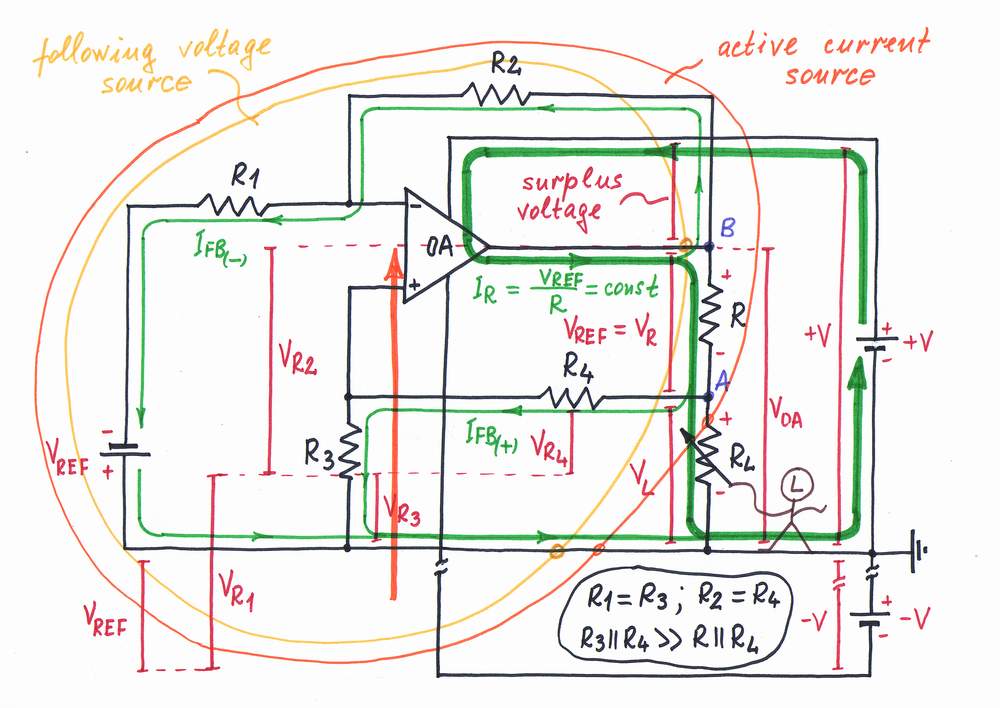 following voltage
source
active current
source
R2
R1
surplus
voltage
-
OA
+
B
I_FB(-)
I_R = V_REF/R = const
+
R
-
V_REF = V_R
V_R2
+V
+
+V
-
R4
A
V_OA
I_FB(+)
V_R4
+
R_L
-
R3
-
V_REF
+
V_L
L
V_R3
V_R1
V_REF
R1 = R3 ; R2 = R4
R3||R4 >> R||R_L
-V
+
-V
-